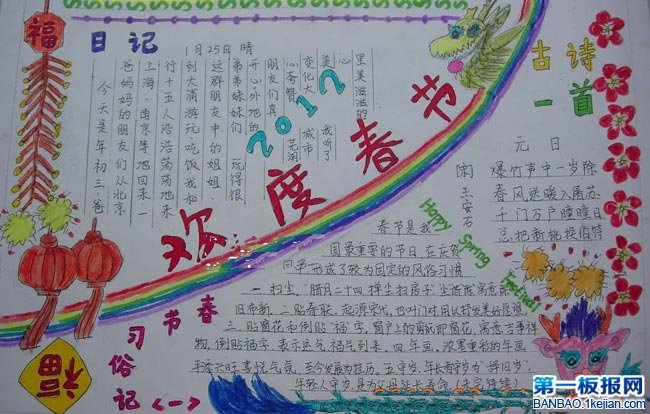 福
日记
1月25日 晴
今天是年初三，爸
爸妈妈的朋友们从北京
上海、南京等地回来一
行十五人浩浩荡荡地来
到大浦游玩、吃饭，我和
这群朋友中的姐姐、
弟弟妹妹们玩得很
开心。外地的
朋友们真
心夸赞
变化大 城市
美， 我听了
心
里美滋滋的
2012
欢度春节
Happy Spring Festival
古诗
一首
元日
[宋] 王安石
爆竹声中一岁除
春风送暖入屠苏
千门万户曈曈日
总把新桃换旧符
春节习俗记<一>
春节是我
国最重要的节日,在庆贺
同时形成了较为固定的风俗习惯
一.扫尘,"腊月二十四,掸尘扫房子"
旧布新。二.贴春联,
三.贴窗花和倒贴"福"字,窗户上的剪纸即窗花,寓意吉事祥
物,倒贴福字,表示运气、福气到来。四.年画,浓墨重彩的年画
喜悦气氛,至今发展为挂历。五.守岁,年长者守岁为"辞旧岁"
年轻人守岁,是为父母延长寿命。(未完待续)
福
第一板报网
BANBAO.1kejian.com